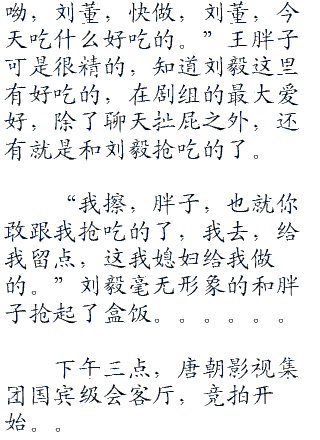 呦，刘董，快做，刘董，今
天吃什么好吃的。”王胖子
可是很精的，知道刘毅这里
有好吃的，在剧组的最大爱
好，除了聊天扯屁之外，还
有就是和刘毅抢吃的了。
“我擦，胖子，也就你
敢跟我抢吃的了，我去，给
我留点，这我媳妇给我做
的。”刘毅毫无形象的和胖
子抢起了盒饭。。。。。。
下午三点，唐朝影视集
团国宾级会客厅，竞拍开
始。。